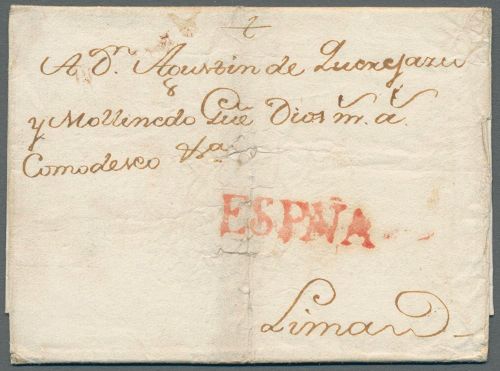 A Dn. Agustin de Querejazu
y Mollinedo Gue Dios ms. as.
Comodeseo
ESPAÑA
Lima